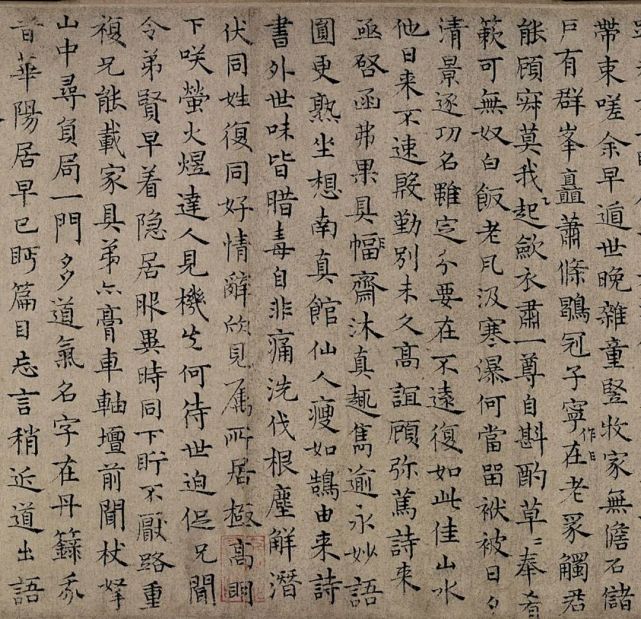 帶束嗟余早遁世晚雜童豎牧家無儋石儲
戶有群峯矗蕭條鶡冠子寧在老累觸君
能顧寂莫我起斂衣肅一尊自斟酌草〻奉肴
蔌可無奴白飯老瓦汲寒瀑何當留襆被日夕
清景逐功名雖定分要在不遠復如此佳山水
他日来不速殷勤別未久高誼顧弥篤詩来
亟啓函弗果具幅齋沐真趣雋逾永妙語
圓更熟坐想南真館仙人瘦如鵠由来詩
書外世味皆腊毒自非痛洗伐根塵解潛
伏同姓復同好情辭的見属所居極高明
下咲螢火煜達人見機先何待世迫促兄聞
令弟賢早着隐居服異時同下不厭路重
複兄能載家具弟亦膏車軸壇前聞杖拏
山中尋負局一門多道氣名字在丹籙
昔華陽居早已眄篇目忘言稍近道出語